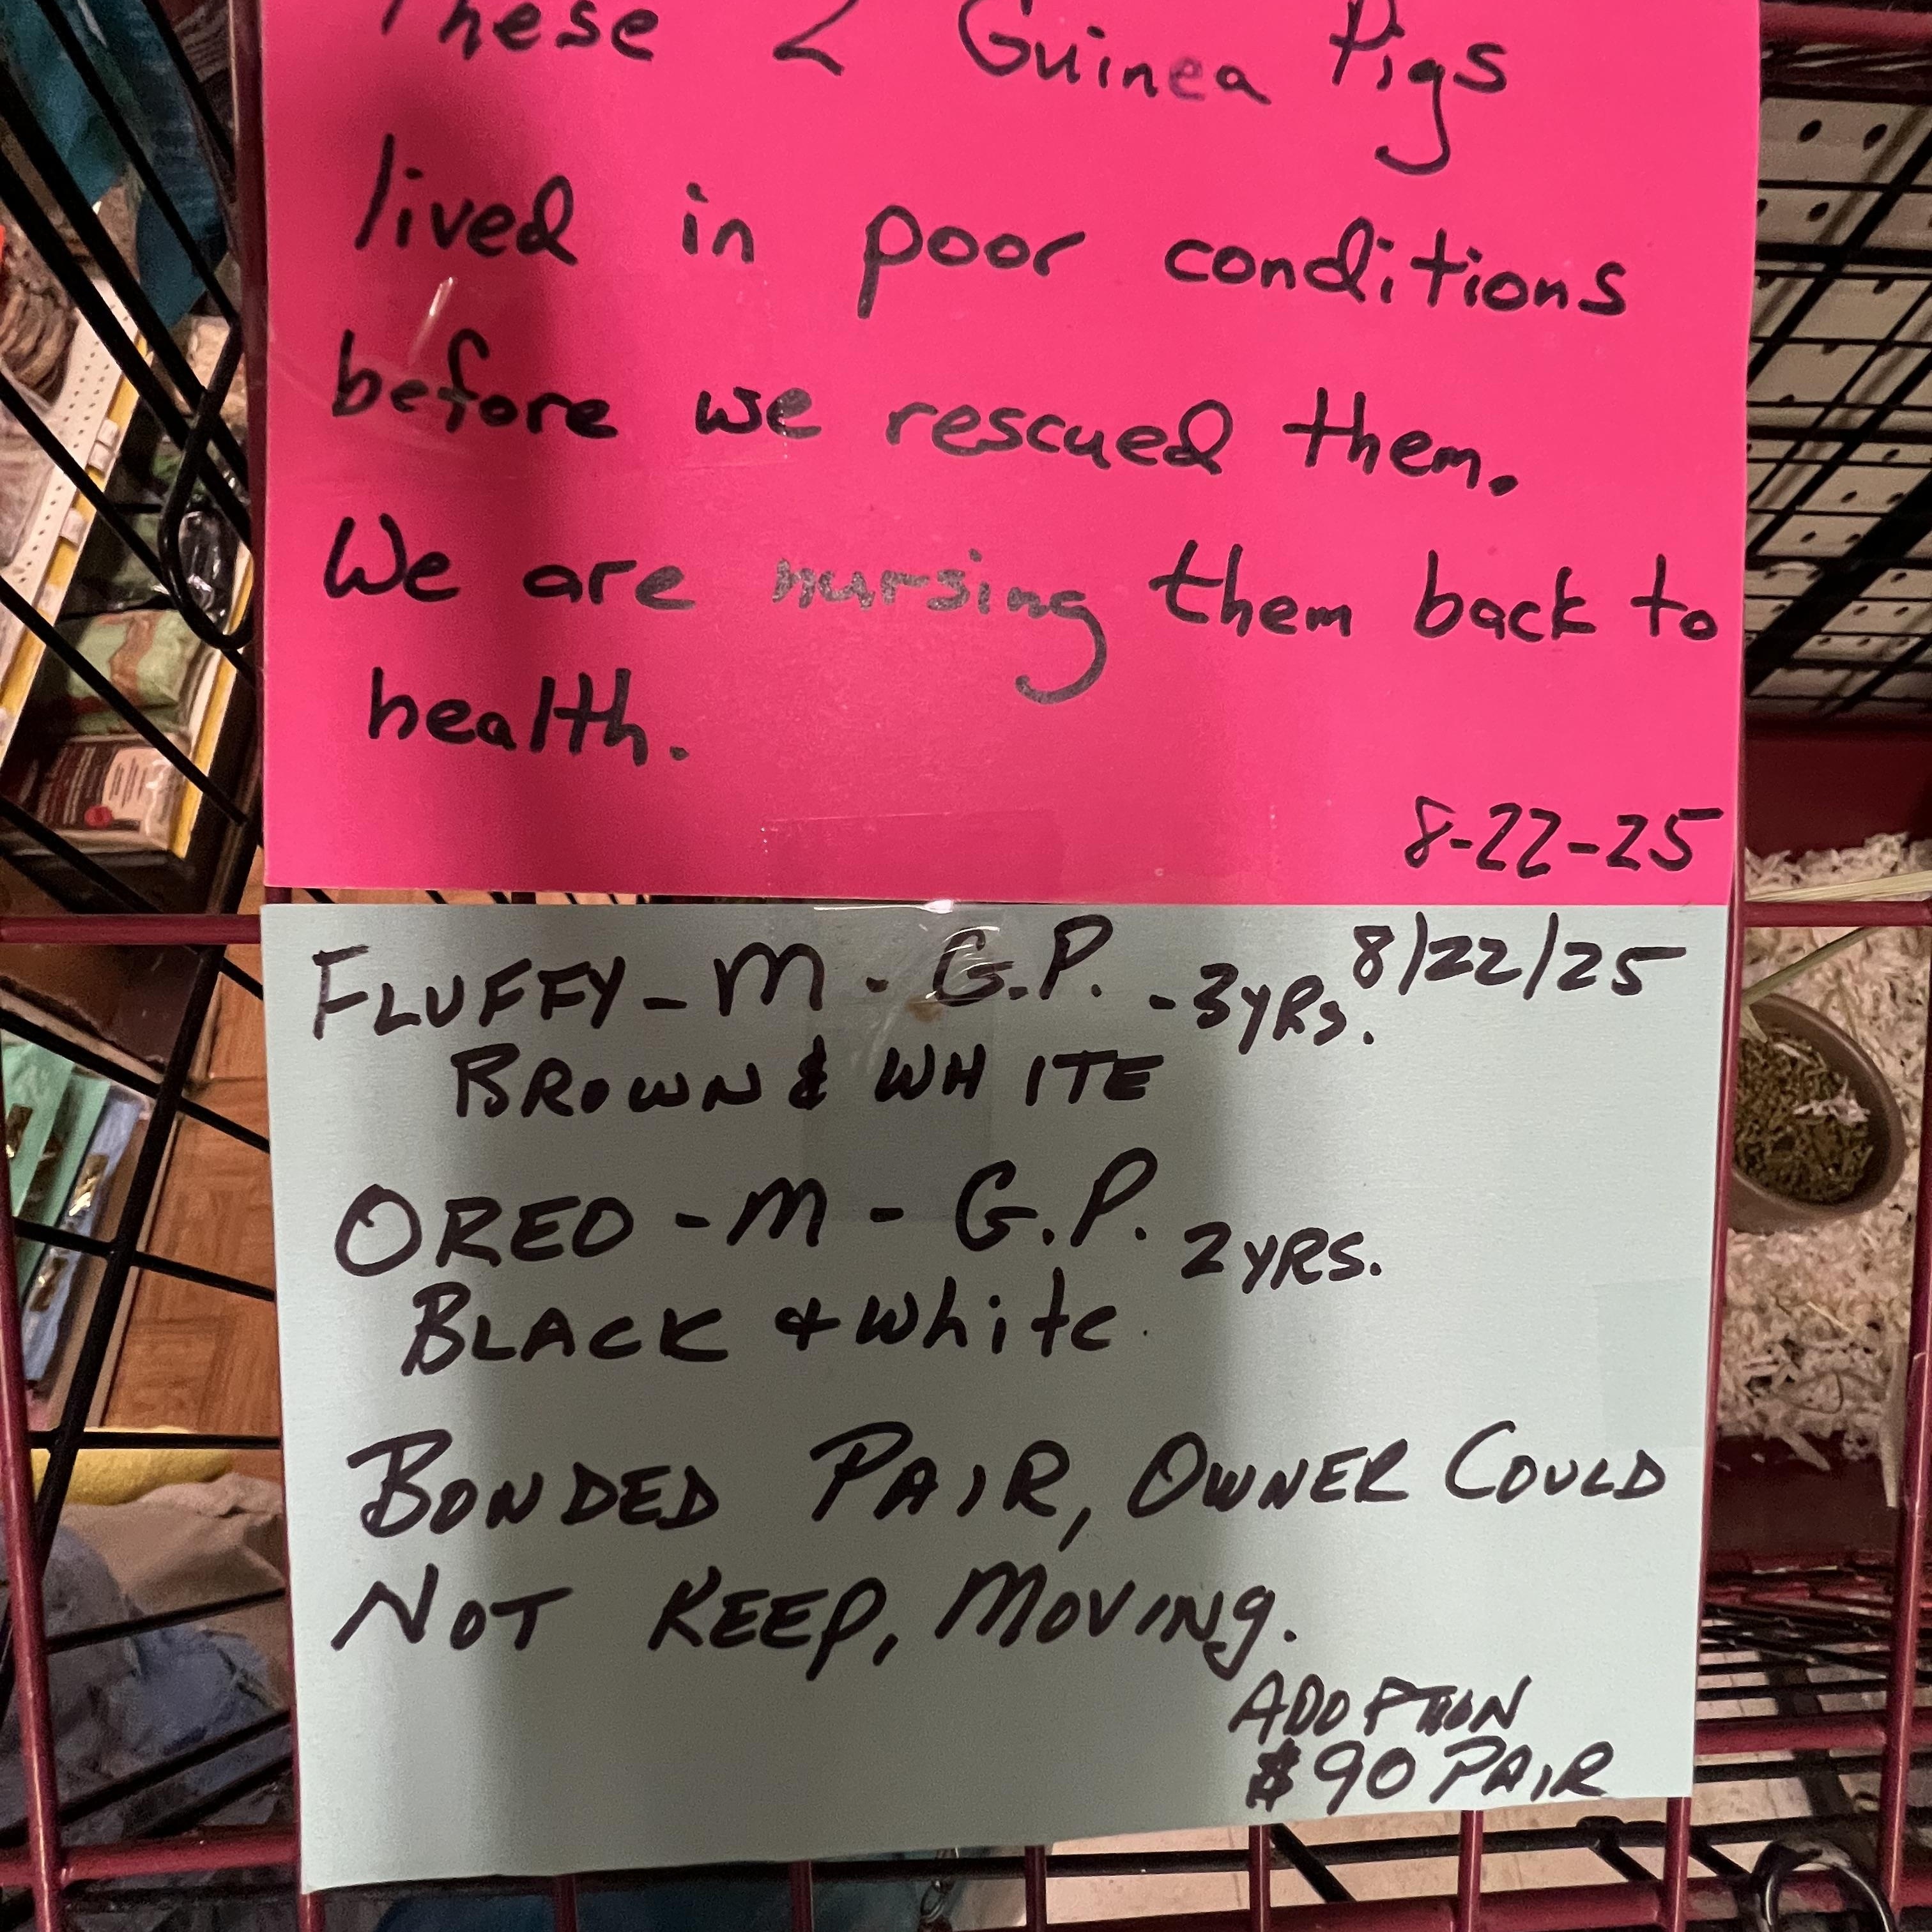 These 2 Guinea Pigs
lived in poor conditions
before we rescued them.
We are nursing them back to
health.
8-22-25
FLUFFY - M - G.P. - 3 YRS. 8/22/25
BROWN & WHITE
OREO - M - G.P. 2 YRS.
BLACK + White
BONDED PAIR, OWNER COULD
NOT KEEP, MOVING.
ADOPTION
$90 PAIR